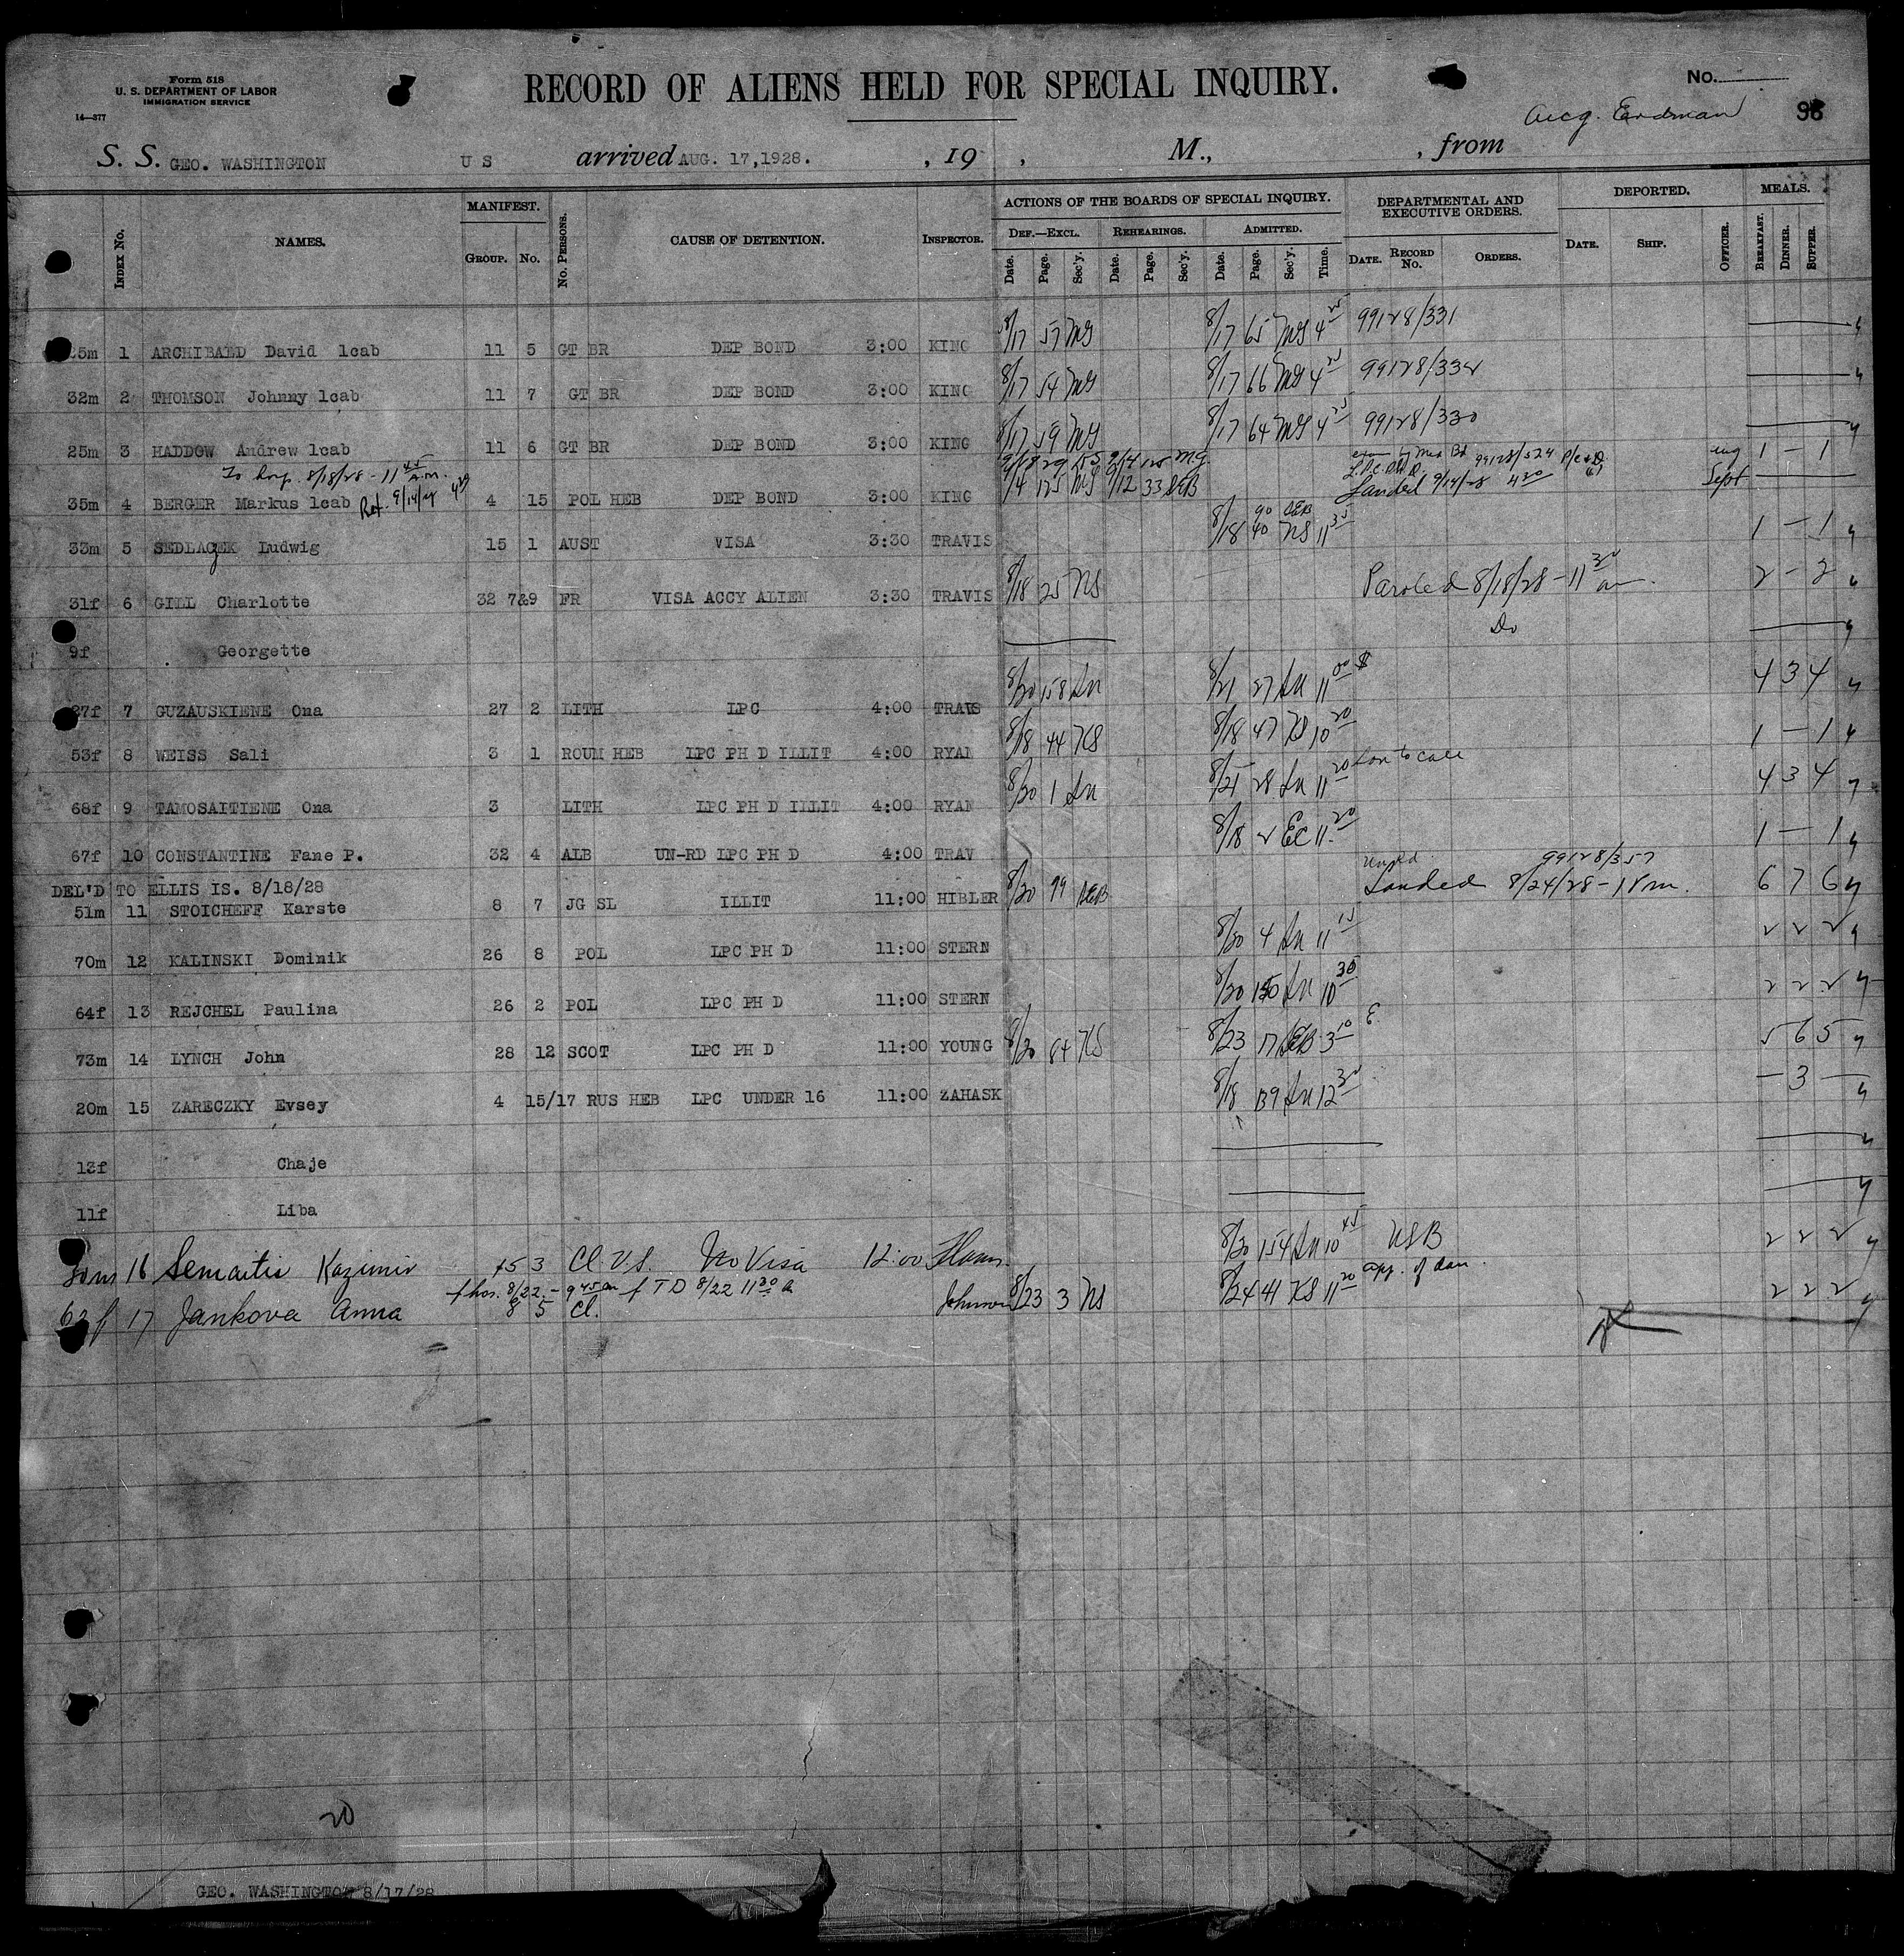 Form 518
U. S. DEPARTMENT OF LABOR
IMMIGRATION SERVICE
14—377
RECORD OF ALIENS HELD FOR SPECIAL INQUIRY.
No.
Aug. Erdman 96
S. S. GEO. WASHINGTON U S arrived AUG. 17,1928. , 19 , M., , from
INDEX No. NAMES. MANIFEST. GROUP. No. No. PERSONS. CAUSE OF DETENTION. INSPECTOR. ACTIONS OF THE BOARDS OF SPECIAL INQUIRY. DEF.—EXCL. Date. Page. Sec'y. REHEARINGS. Date. Page. Sec'y. ADMITTED. Date. Page. Sec'y. Time. DEPARTMENTAL AND EXECUTIVE ORDERS. DATE. RECORD No. ORDERS. DEPORTED. DATE. SHIP. OFFICER. MEALS. BREAKFAST. DINNER. SUPPER.
25m 1 ARCHIBALD David lcab 11 5 GT BR DEP BOND 3:00 KING 8/17 57 MG 8/17 65 MG 4 25 99128/331
32m 2 THOMSON Johnny lcab 11 7 GT BR DEP BOND 3:00 KING 8/17 54 MG 8/17 66 MG 4 25 99128/332
25m 3 HADDOW Andrew lcab 11 6 GT BR DEP BOND 3:00 KING 8/17 59 MG 8/17 64 MG 4 25 99128/330
To Hosp. 8/18/28 - 11 45 A.M. 99128/524 Aug 1 — 1
35m 4 BERGER Markus lcab Ret. 9/14/28 4 15 POL HEB DEP BOND 3:00 KING 9/4 125 MG 9/12 33 SEB Landed 9/14/28 4 20 Sept
33m 5 SEDLACEK Ludwig 15 1 AUST VISA 3:30 TRAVIS 8/18 40 NS 11 35 1 — 1
31f 6 GILL Charlotte 32 7&9 FR VISA ACCY ALIEN 3:30 TRAVIS 8/18 25 NS Paroled 8/18/28 - 11 30 am 2 — 2
9f Georgette Do
27f 7 GUZAUSKIENE Ona 27 2 LITH LPC 4:00 TRAVS 8/20 158 LM 8/21 27 LM 11 00 4 3 4
53f 8 WEISS Sali 3 1 ROUM HEB LPC PH D ILLIT 4:00 RYAN 8/18 44 KS 8/18 47 KS 10 20 1 — 1
68f 9 TAMOSAITIENE Ona 3 LITH LPC PH D ILLIT 4:00 RYAN 8/20 1 LM 8/21 28 LM 11 20 Son to call 4 3 4
67f 10 CONSTANTINE Fane P. 32 4 ALB UN-RD LPC PH D 4:00 TRAV 8/18 2 EC 11 20 1 — 1
DEL'D TO ELLIS IS. 8/18/28 99128/357
51m 11 STOICHEFF Karste 8 7 JG SL ILLIT 11:00 HIBLER 8/20 99 SEB Landed 8/24/28 - 6 7 6
70m 12 KALINSKI Dominik 26 8 POL LPC PH D 11:00 STERN 8/20 4 LM 11 15 2 2 2
64f 13 REJCHEL Paulina 26 2 POL LPC PH D 11:00 STERN 8/20 150 LM 10 30 2 2 2
73m 14 LYNCH John 28 12 SCOT LPC PH D 11:00 YOUNG 8/20 84 KS 8/23 17 SEB 3 10 5 6 5
20m 15 ZARECZKY Evsey 4 15/17 RUS HEB LPC UNDER 16 11:00 ZAHASK 8/18 139 LM 12 30 — 3 —
13f Chaje
11f Liba
30m 16 Semaitis Kazimir 15 3 Cl. V.S. No Visa 12:00 8/20 154 LM 10 45 USB 2 2 2
8/22 - 9 45 am TD 8/22 11 30 a app. of dau.
62f 17 Jankova Anna 8 5 Cl. Johnson 8/23 3 NS 8/24 41 KS 11 20 2 2 2
20
GEO. WASHINGTON 8/17/28